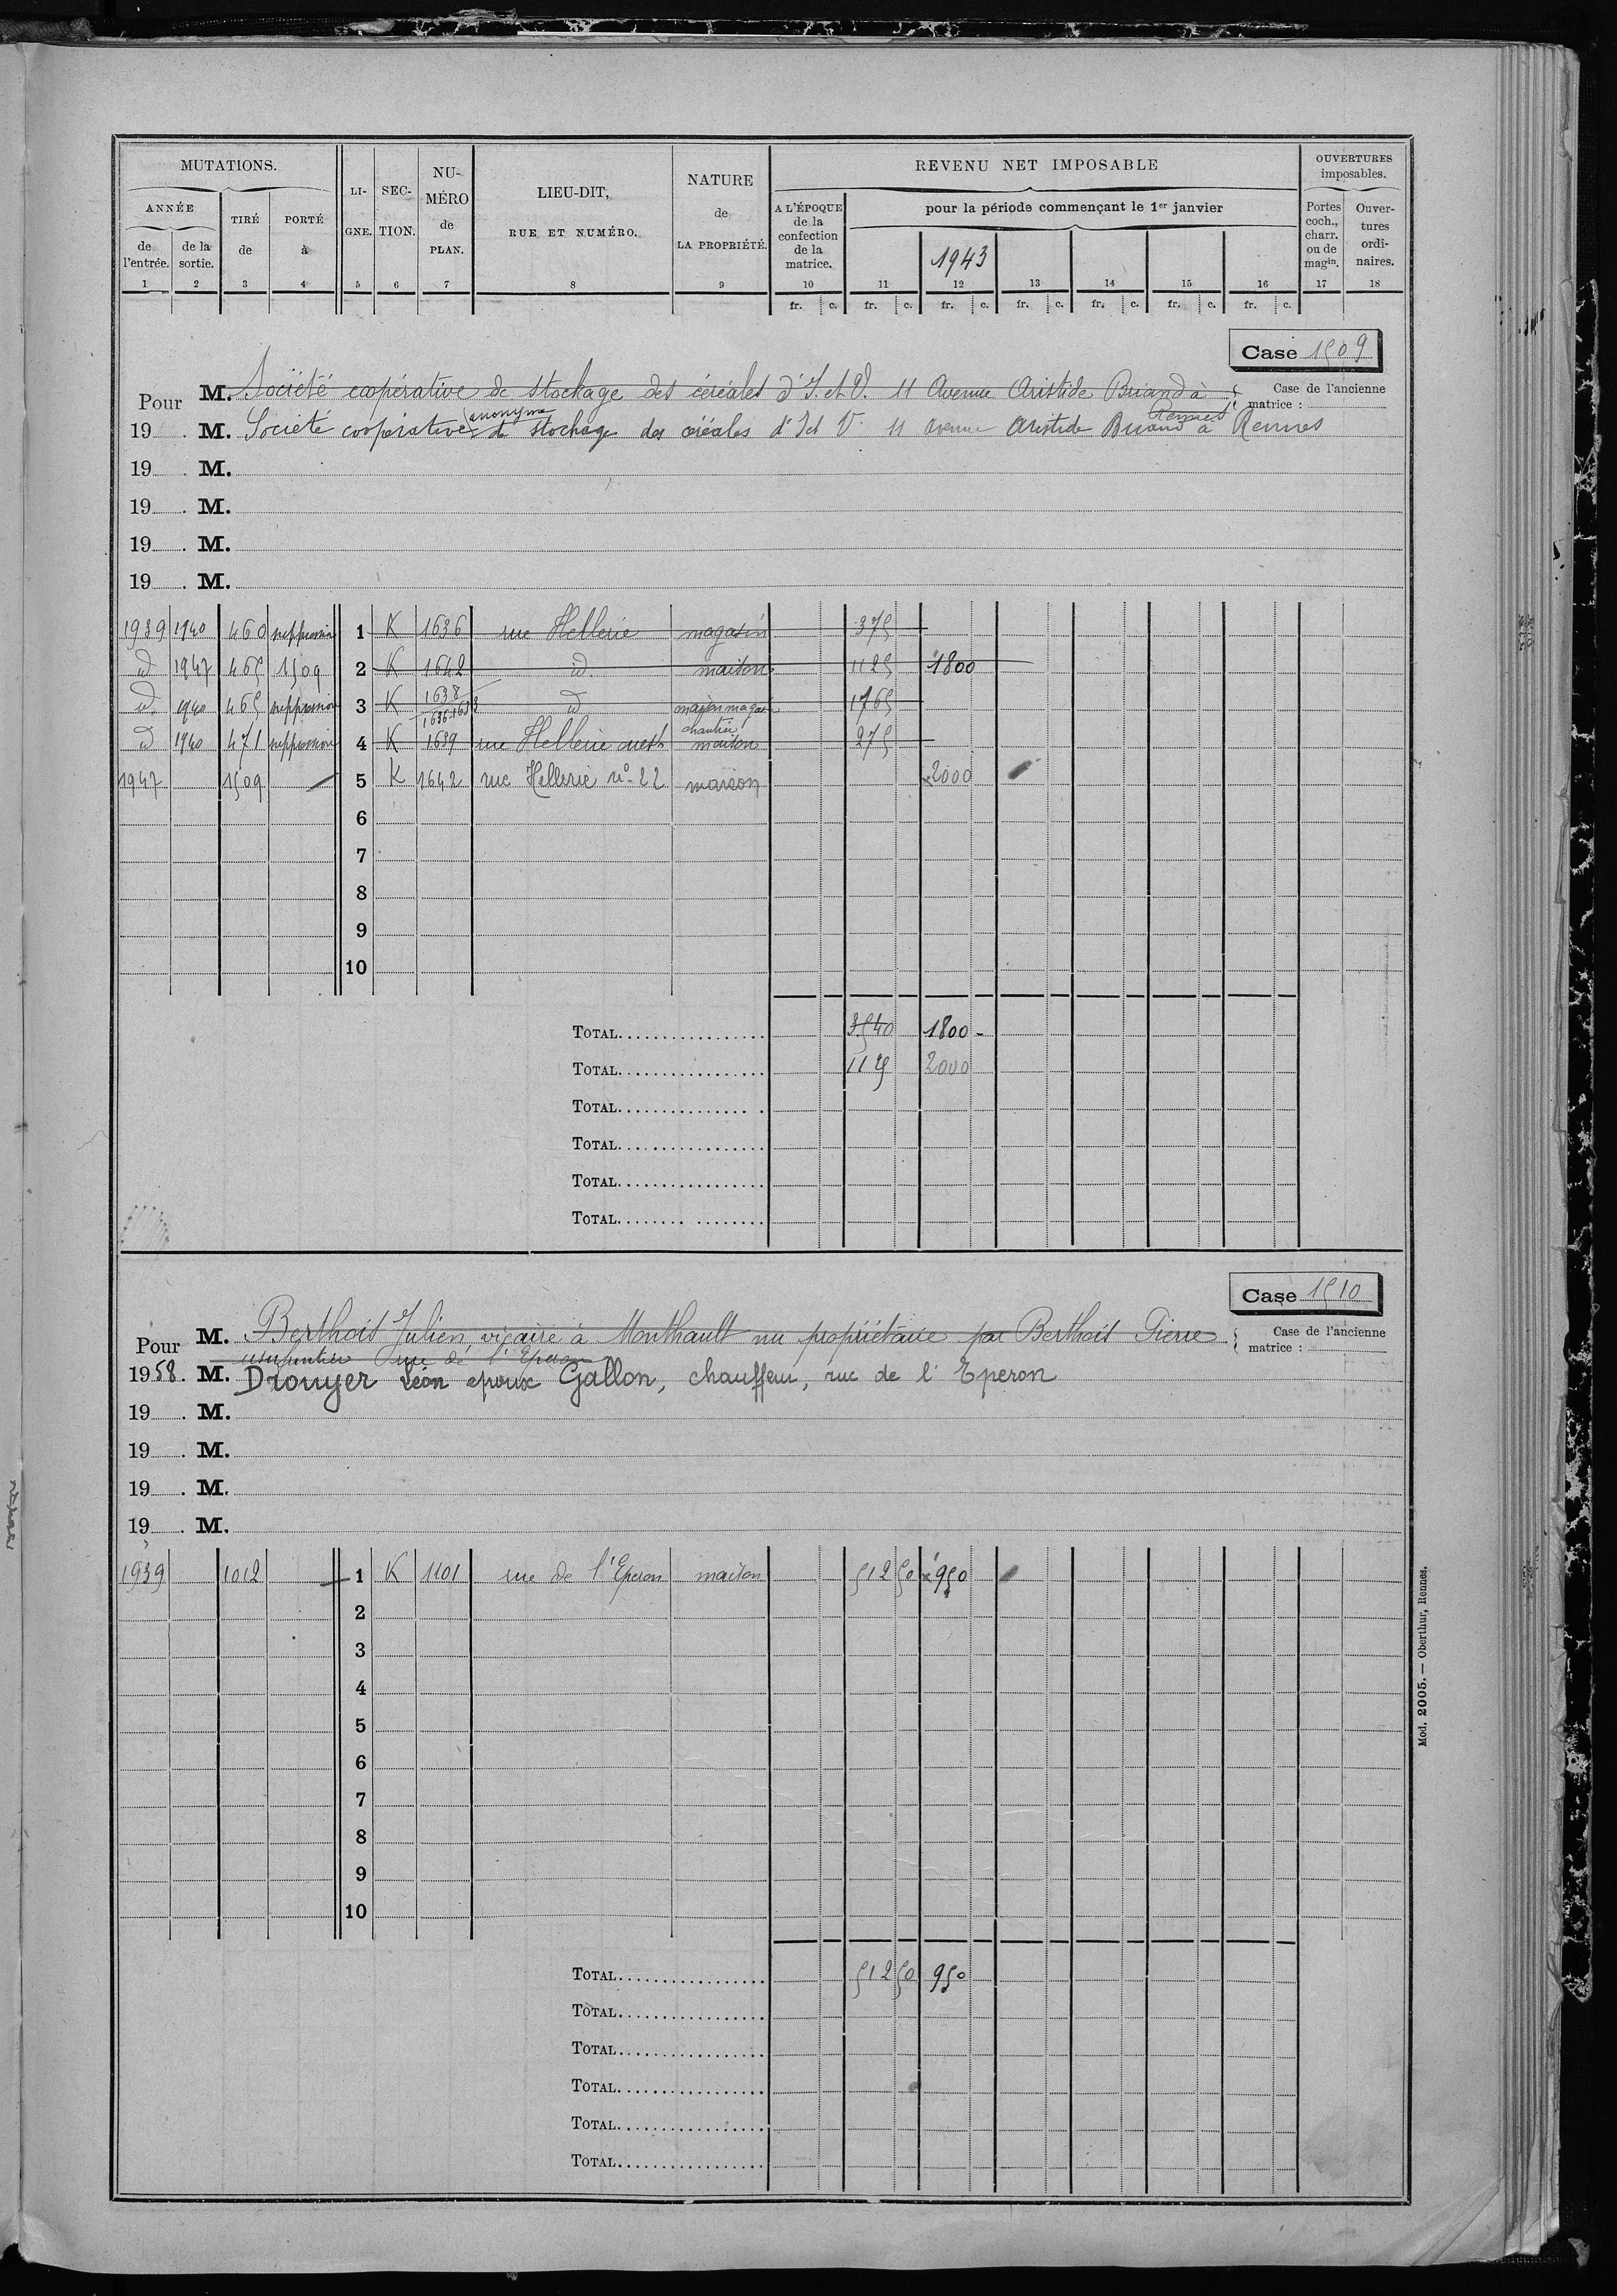 MUTATIONS.
ANNÉE
de l'entrée.
de la sortie.
TIRÉ de
PORTÉ à
LIGNE.
SECTION.
NUMÉRO de PLAN.
LIEU-DIT, RUE ET NUMÉRO.
NATURE de LA PROPRIÉTÉ.
REVENU NET IMPOSABLE
A L'ÉPOQUE de la confection de la matrice.
pour la période commençant le 1er janvier
1943
OUVERTURES imposables.
Portes coch., charr. ou de magin.
Ouvertures ordinaires.
1 2 3 4 5 6 7 8 9 10 11 12 13 14 15 16 17 18
fr. c. fr. c. fr. c. fr. c. fr. c. fr. c. fr. c.
Case 1509
Pour M. Société coopérative de stockage des céréales d'I. et V. 11 Avenue Aristide Briand à Rennes
Case de l'ancienne matrice :
19 . M. Société coopérative anonyme de stockage des céréales d'I et V. 11 avenue Aristide Briand à Rennes
19 . M.
19 . M.
19 . M.
19 . M.
1939 1940 460 suppression 1 K 1636 rue Hellerie magasin 375
id 1947 465 1509 2 K 1642 id. maison 1125 1800
id. 1940 465 suppression 3 K 1638 1636-1638 id magasin 1765
id 1940 471 suppression 4 K 1639 rue Hellerie ouest chantier maison 275
1947 1509 5 K 1642 rue Hellerie n° 22 maison 2000
6
7
8
9
10
TOTAL 3540 1800 -
TOTAL 1125 2000
TOTAL
TOTAL
TOTAL
TOTAL
Case 1510
Pour M. Berthois Julien, vicaire à Monthault nu propriétaire par Berthois Pierre
Case de l'ancienne matrice :
usufruitier rue de l'Eperon
1958. M. Drouyer Léon époux Gallon, chauffeur, rue de l'Eperon
19 . M.
19 . M.
19 . M.
19 . M.
1939 1012 1 K 1101 rue de l'Eperon maison 512 50 950
2
3
4
5
6
7
8
9
10
TOTAL 512 50 950
TOTAL
TOTAL
TOTAL
TOTAL
TOTAL
Mod. 2005. — Oberthur, Rennes.